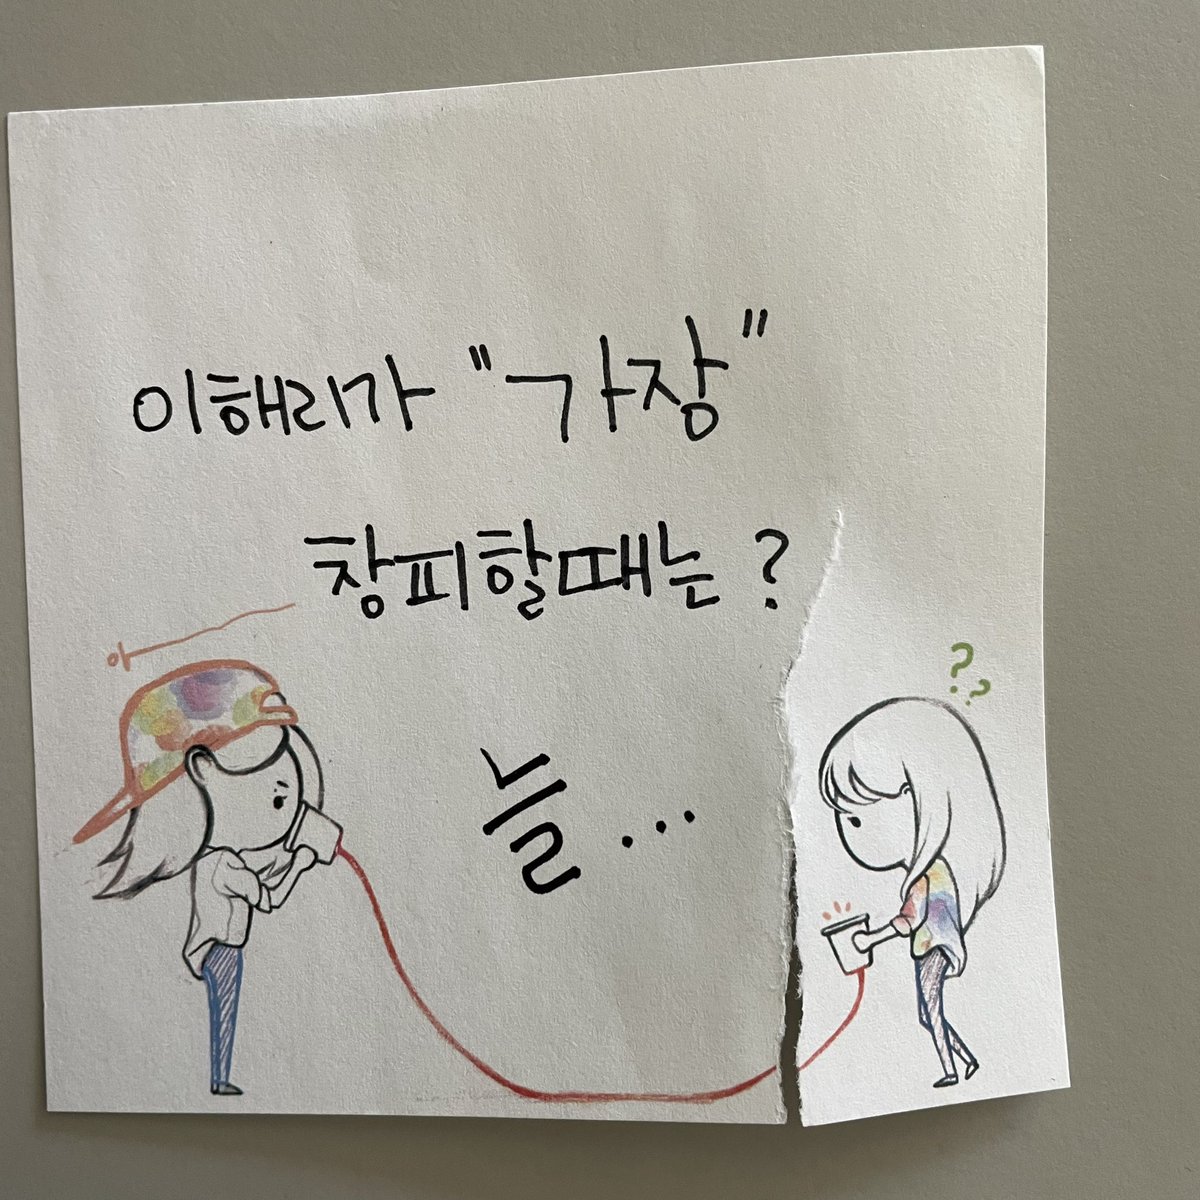 이해리가 "가장"
창피할때는 ?
아
??
늘...